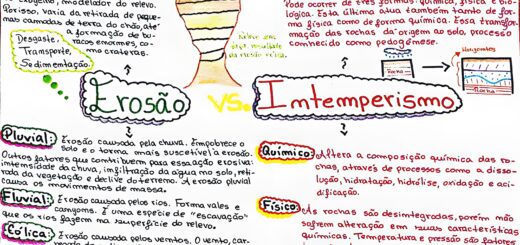 exógeno, modelador do relevo.
Por isso, varia da retirada de peque-
nas camadas de terra do chão, até
a formação de bu-
racos enormes, co-
mo crateras.
Desgaste,
Transporte,
Sedimentação.
Pode ocorrer de três formas: química, física e bio-
lógica. Esta última atua também tanto de for-
ma física como de forma química. Essa transfor-
mação das rochas dá origem ao solo, processo
conhecido como pedogênese.
Horizontes
Rocha
Rocha
Erosão vs. Imtemperismo
Pluvial: Erosão causada pela chuva. Empobrece o
solo e o torna mais suscetível à erosão.
Outros fatores que contribuem para essa ação erosiva:
intensidade da chuva, infiltração da água no solo, reti-
rada da vegetação e declive do terreno. A erosão pluvial
causa os movimentos de massa.
Fluvial: Erosão causada pelos rios. Forma vales e
canyons. É uma espécie de "escavação"
que os rios fazem na superfície do relevo.
Eólica: Erosão causada pelos ventos. O vento, car-
Químico: Altera a composição química das ro-
chas, através de processos como a disso-
lução, hidratação, hidrólise, oxidação e aci-
dificação.
Físico: As rochas são desintegradas, porém não
sofrem alteração em suas características
químicas. Temperatura e pressão são fatores